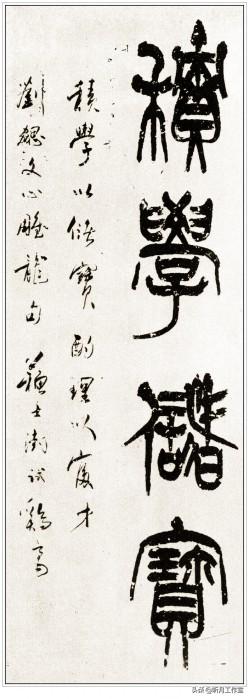 積學儲寶
積學以儲寶酌理以富才
劉勰文心雕龍句蘇士澍試鷄毫
头条@昕月工作室